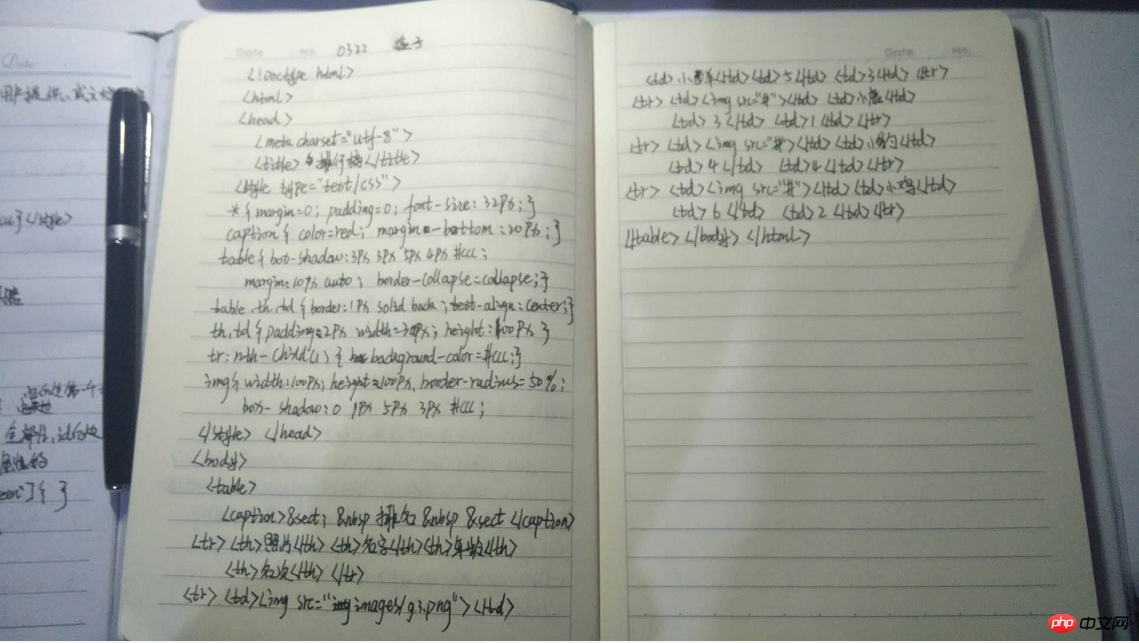 Date
用户提供
</style>
] { }
Date No. 0322
<!Doctype html>
<html>
<head>
<meta charset="utf-8">
<title> </title>
<style type="text/css">
*{ margin=0; padding=0; font-size: 32px; }
caption{ color=red; margin-bottom:20px; }
table{ box-shadow:3px 3px 5px 4px #ccc;
margin:10px auto; border-collapse=collapse; }
table,th,td{border:1px solid back; text-align:center;}
th,td{padding=2px width=300px; height:100px }
tr:nth-child(1) { background-color=#ccc;}
img{ width:100px, height=100px, border-radius=50%;
box-shadow:0 1px 5px 3px #ccc;
</style> </head>
<body>
<table>
<caption>&sect; &nbsp 排名 &nbsp &sect </caption>
<tr><th>照片</th> <th>名字</th><th>年龄</th>
<th>名次</th> </tr>
<tr> <td><img src="images/g3.png"></td>
Date No.
<td>小 羊</td><td>5</td> <td>3</td> </tr>
<tr> <td><img src="#"></td> <td>小 </td>
<td>3</td> <td>1</td> </tr>
<tr> <td><img src="#"></td><td>小狗</td>
<td>4</td> <td>4</td></tr>
<tr> <td><img src="#"></td><td>小鸡</td>
<td>6</td> <td>2</td></tr>
</table> </body> </html>
php 中文网